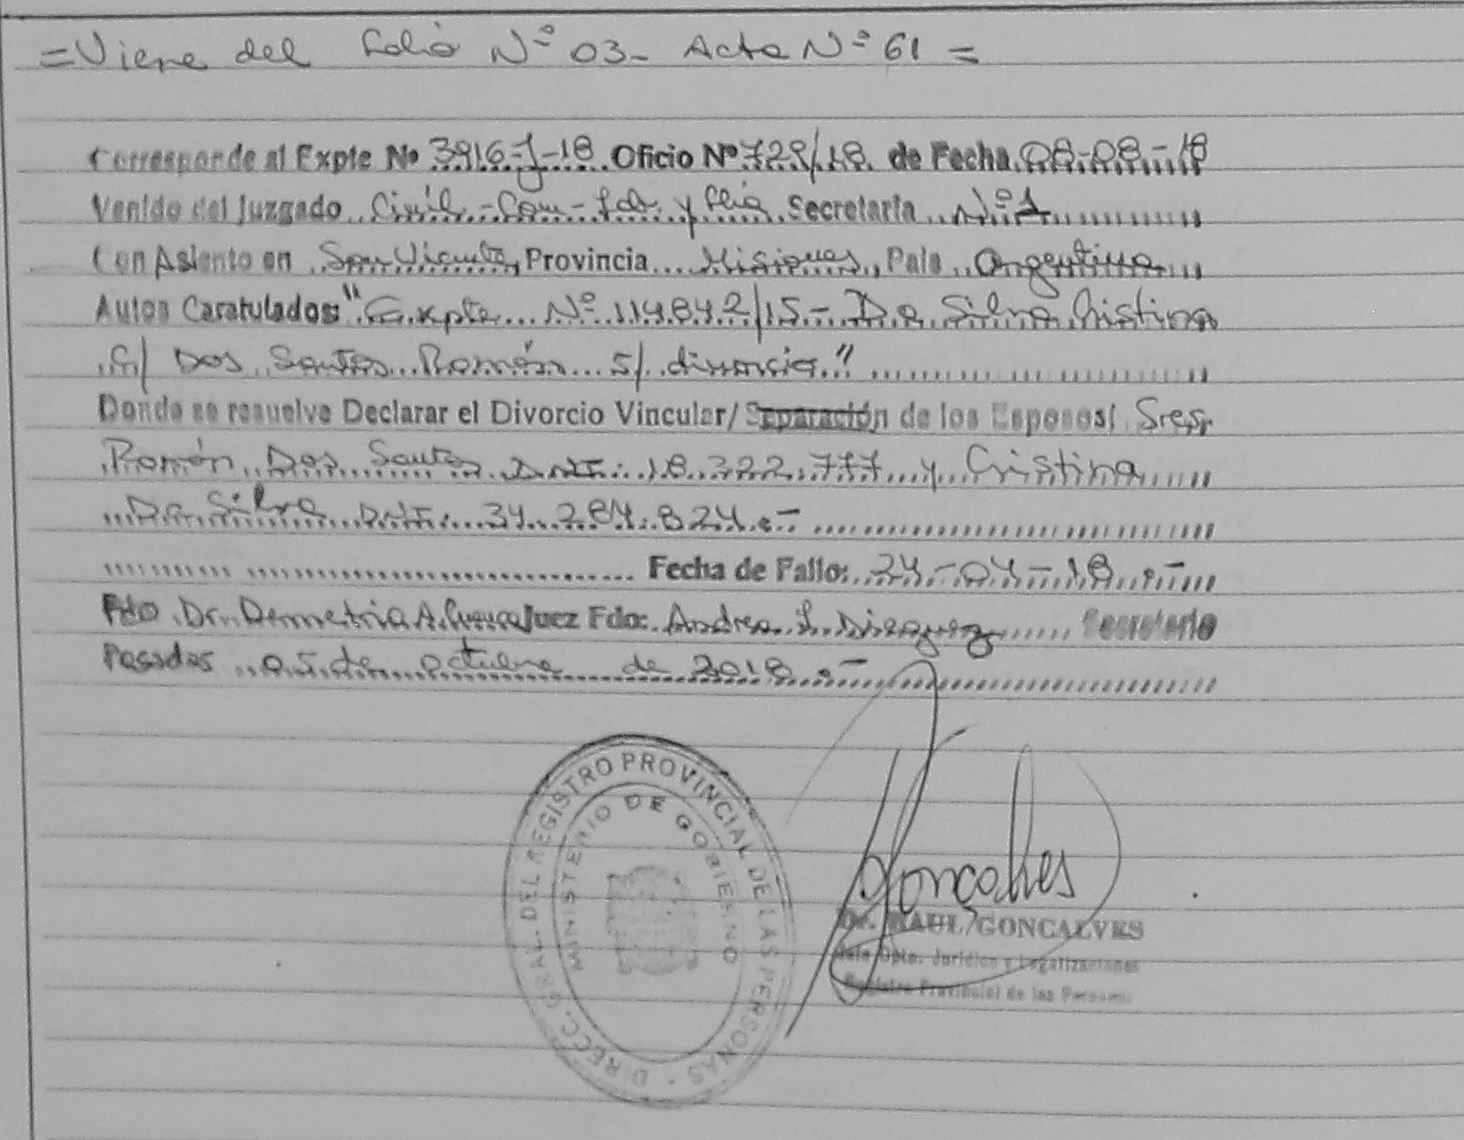 =Viene del Folio Nº 03- Acta Nº 61 =
Corresponde al Expte Nº 3916-J-18 Oficio Nº 729/18 de Fecha 08-08-18
Venido del Juzgado Civil-Com-Lab. y flia Secretaria Nº 1
Con Asiento en San Vicente, Provincia Misiones, Pais Argentina
Autos Caratulados: "Expte Nº 114842/15- Da Silva Cristina
C/ Dos Santos Román S/ divorcio"
Donde se resuelve Declarar el Divorcio Vincular/ Separación de los Esposos: Sres.
Román Dos Santos DNI: 18.322.777 y Cristina
Da Silva DNI: 34.284.824.-
Fecha de Fallo: 24-04-18.-
Fdo Dr. Demetrio A. Juez Fdo: Andrea L. Dieguez Secretario
Posadas 05 de octubre de 2018.-
DIRECC. GRAL. DEL REGISTRO PROVINCIAL DE LAS PERSONAS -
MINISTERIO DE GOBIERNO
Goncalves
Dr. RAUL GONCALVES
Jefe Dpto. Jurídico y Legalizaciones
Registro Provincial de las Personas